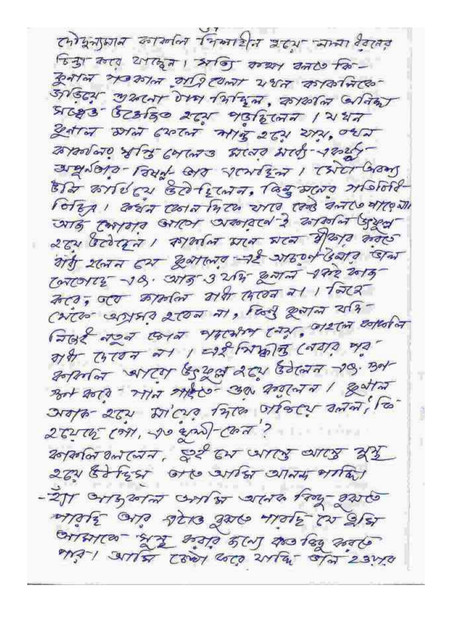 দোদুল্যমান কাকলি দিশাহীন হয়ে নানা ধরনের
চিন্তা করে যাচ্ছেন। সত্যি কথা বলতে কি-
কুনাল গতকাল রাত্রিবেলা যখন কাকলিকে
জড়িয়ে শুকনো ঠাপ দিচ্ছিল, কাকলি অনিচ্ছা
সত্ত্বেও উত্তেজিত হয়ে পড়ছিলেন। যখন
কুনাল মাল ফেলে শান্ত হয়ে যায়, তখন
কাকলিও স্বস্তি পেলেও মনের মধ্যে একটা
অপূর্ণতার বিষণ্ণ ভাব এসেছিল। সেটা অবশ্য
উনি কাটিয়ে উঠেছিলেন, কিন্তু মনের গতিবিধি
বিচিত্র। কখন কোন দিকে যাবে কেউ বলতে পারে না।
আজ শোবার আগে অকারণে-ই কাকলি উৎফুল্ল
হয়ে উঠেছেন। কাকলি মনে মনে স্বীকার করতে
বাধ্য হলেন যে কুনালের এই আচরণ উনার ভাল
লেগেছে এবং আজও যদি কুনাল একই কাজ
করে, তবে কাকলি বাধা দেবেন না। নিজে
থেকে অগ্রসর হবেন না, কিন্তু কুনাল যদি
নিজেই নতুন কোন পদক্ষেপ নেয়, তাহলে কাকলি
বাধা দেবেন না। এই সিদ্ধান্ত নেবার পর
কাকলি আরো উৎফুল্ল হয়ে উঠলেন এবং গুণ
গুণ করে গান গাইতে শুরু করলেন। কুনাল
অবাক হয়ে মা'য়ের দিকে তাকিয়ে বলল, 'কি
হয়েছে গো, এত খুশী-কেন'?
কাকলি বললেন, তুই যে আস্তে আস্তে সুস্থ
হয়ে উঠছিস তাতে আমি আনন্দ পাচ্ছি।
-হ্যাঁ আজকাল আমি অনেক কিছু বুঝতে
পারছি আর এটাও বুঝতে পারছি যে তুমি
আমাকে সুস্থ করার জন্যে কত কিছু করতে
পার। আমি চেষ্টা করে যাচ্ছি ভাল হওয়ার